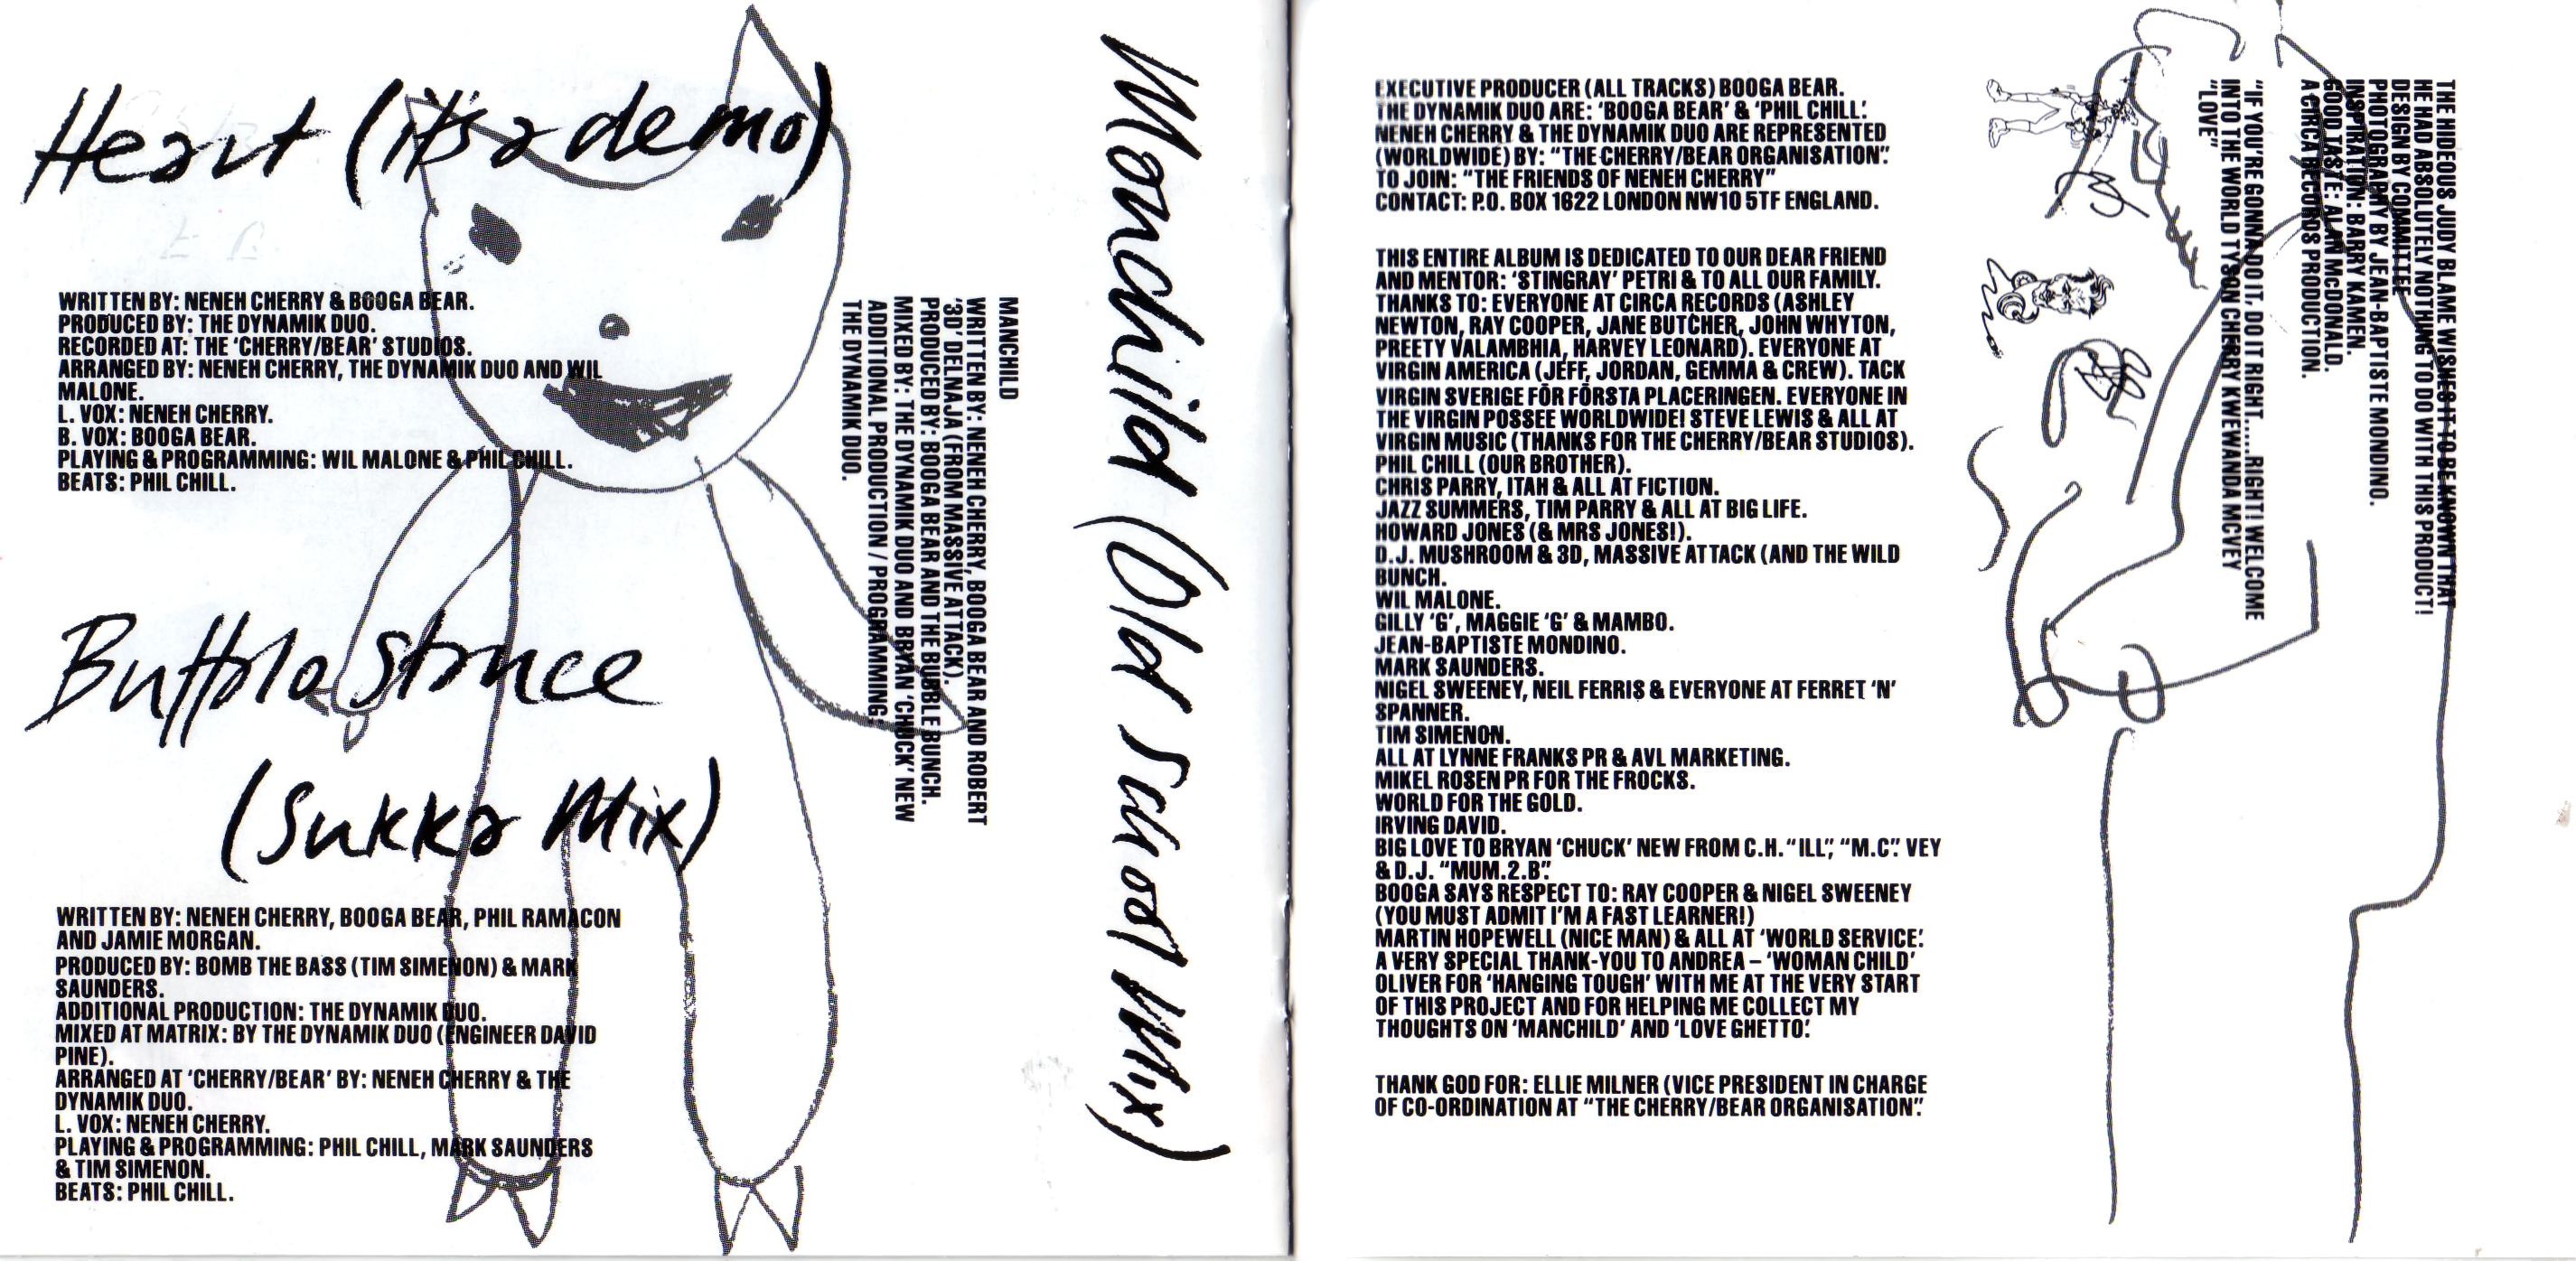 Heart (it's a demo)
WRITTEN BY: NENEH CHERRY & BOOGA BEAR.
PRODUCED BY: THE DYNAMIK DUO.
RECORDED AT: THE 'CHERRY/BEAR' STUDIOS.
ARRANGED BY: NENEH CHERRY, THE DYNAMIK DUO AND WIL
MALONE.
L. VOX: NENEH CHERRY.
B. VOX: BOOGA BEAR.
PLAYING & PROGRAMMING: WIL MALONE & PHIL CHILL.
BEATS: PHIL CHILL.
Buffalo stance
(Sukka Mix)
WRITTEN BY: NENEH CHERRY, BOOGA BEAR, PHIL RAMACON
AND JAMIE MORGAN.
PRODUCED BY: BOMB THE BASS (TIM SIMENON) & MARK
SAUNDERS.
ADDITIONAL PRODUCTION: THE DYNAMIK DUO.
MIXED AT MATRIX: BY THE DYNAMIK DUO (ENGINEER DAVID
PINE).
ARRANGED AT 'CHERRY/BEAR' BY: NENEH CHERRY & THE
DYNAMIK DUO.
L. VOX: NENEH CHERRY.
PLAYING & PROGRAMMING: PHIL CHILL, MARK SAUNDERS
& TIM SIMENON.
BEATS: PHIL CHILL.
Manchild (Old School Mix)
MANCHILD
WRITTEN BY: NENEH CHERRY, BOOGA BEAR AND ROBERT
'3D' DELNAJA (FROM MASSIVE ATTACK).
PRODUCED BY: BOOGA BEAR AND THE BUBBLE BUNCH.
MIXED BY: THE DYNAMIK DUO AND BRYAN 'CHUCK' NEW
ADDITIONAL PRODUCTION / PROGRAMMING:
THE DYNAMIK DUO.
EXECUTIVE PRODUCER (ALL TRACKS) BOOGA BEAR.
THE DYNAMIK DUO ARE: 'BOOGA BEAR' & 'PHIL CHILL'.
NENEH CHERRY & THE DYNAMIK DUO ARE REPRESENTED
(WORLDWIDE) BY: "THE CHERRY/BEAR ORGANISATION".
TO JOIN: "THE FRIENDS OF NENEH CHERRY"
CONTACT: P.O. BOX 1622 LONDON NW10 5TF ENGLAND.
THIS ENTIRE ALBUM IS DEDICATED TO OUR DEAR FRIEND
AND MENTOR: 'STINGRAY' PETRI & TO ALL OUR FAMILY.
THANKS TO: EVERYONE AT CIRCA RECORDS (ASHLEY
NEWTON, RAY COOPER, JANE BUTCHER, JOHN WHYTON,
PREETY VALAMBHIA, HARVEY LEONARD). EVERYONE AT
VIRGIN AMERICA (JEFF, JORDAN, GEMMA & CREW). TACK
VIRGIN SVERIGE FÖR FÖRSTA PLACERINGEN. EVERYONE IN
THE VIRGIN POSSEE WORLDWIDE! STEVE LEWIS & ALL AT
VIRGIN MUSIC (THANKS FOR THE CHERRY/BEAR STUDIOS).
PHIL CHILL (OUR BROTHER).
CHRIS PARRY, ITAH & ALL AT FICTION.
JAZZ SUMMERS, TIM PARRY & ALL AT BIG LIFE.
HOWARD JONES (& MRS JONES!).
D.J. MUSHROOM & 3D, MASSIVE ATTACK (AND THE WILD
BUNCH.
WIL MALONE.
GILLY 'G', MAGGIE 'G' & MAMBO.
JEAN-BAPTISTE MONDINO.
MARK SAUNDERS.
NIGEL SWEENEY, NEIL FERRIS & EVERYONE AT FERRET 'N'
SPANNER.
TIM SIMENON.
ALL AT LYNNE FRANKS PR & AVL MARKETING.
MIKEL ROSEN PR FOR THE FROCKS.
WORLD FOR THE GOLD.
IRVING DAVID.
BIG LOVE TO BRYAN 'CHUCK' NEW FROM C.H. "ILL", "M.C". VEY
& D.J. "MUM.2.B".
BOOGA SAYS RESPECT TO: RAY COOPER & NIGEL SWEENEY
(YOU MUST ADMIT I'M A FAST LEARNER!)
MARTIN HOPEWELL (NICE MAN) & ALL AT 'WORLD SERVICE'.
A VERY SPECIAL THANK-YOU TO ANDREA – 'WOMAN CHILD'
OLIVER FOR 'HANGING TOUGH' WITH ME AT THE VERY START
OF THIS PROJECT AND FOR HELPING ME COLLECT MY
THOUGHTS ON 'MANCHILD' AND 'LOVE GHETTO'.
THANK GOD FOR: ELLIE MILNER (VICE PRESIDENT IN CHARGE
OF CO-ORDINATION AT "THE CHERRY/BEAR ORGANISATION".
THE HIDEOUS JUDY BLAME WISHES IT TO BE KNOWN THAT
HE HAD ABSOLUTELY NOTHING TO DO WITH THIS PRODUCT!
DESIGN BY COMMITTEE
PHOTOGRAPHY BY JEAN-BAPTISTE MONDINO.
INSPIRATION: BARRY KAMEN.
GOOD TASTE: ALAN McDONALD.
A CIRCA RECORDS PRODUCTION.
"IF YOU'RE GONNA DO IT, DO IT RIGHT.....RIGHT! WELCOME
INTO THE WORLD TYSON CHERRY KWEWANDA MCVEY
"LOVE"